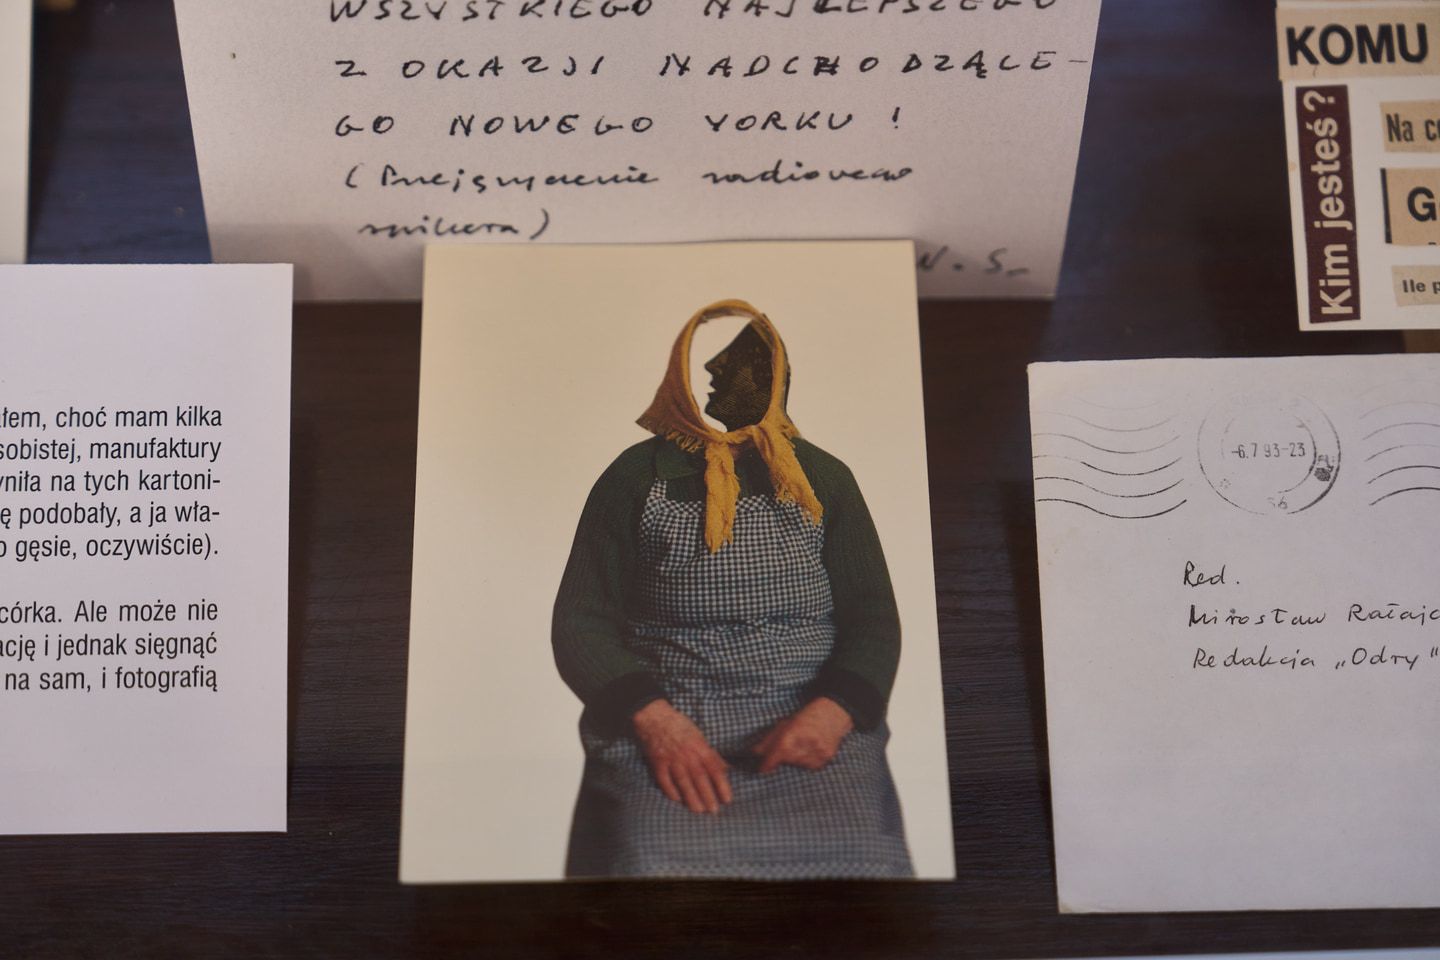 WSZYSTKIEGO NAJLEPSZEGO
Z OKAZJI NADCHODZĄCE-
GO NOWEGO YORKU!
(Przejęzyczenie radiowego
spikera)
W. S.
KOMU
Kim jesteś?
Na co
G
Ile p
ałem, choć mam kilka
sobistej, manufaktury
yniła na tych kartoni-
ę podobały, a ja wła-
o gęsie, oczywiście).
córka. Ale może nie
ację i jednak sięgnąć
na sam, i fotografią
-6.7 93-23
56
Red.
Mirosław Ratajc
Redakcja „Odry"